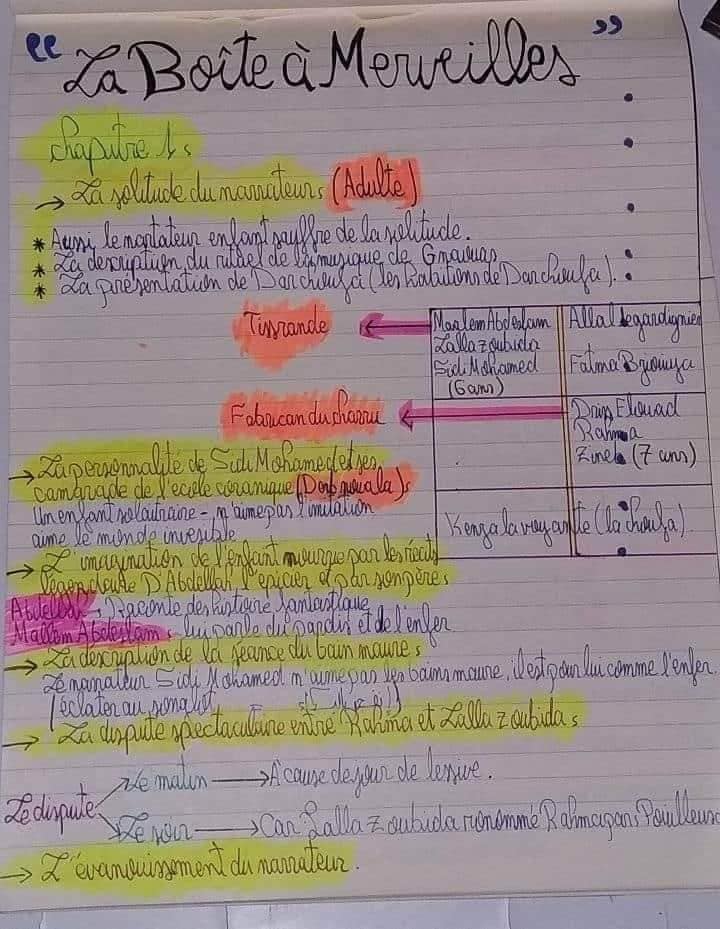 “ La Boîte à Merveilles ”
Chapitre 1:
→ La solitude du narrateur: (Adulte)
* Aussi le narrateur enfant souffre de la solitude.
* La description du rituel de la musique de Gnawas
* La présentation de Dar chouafa (les habitions de Dar Choufa).
Tissrande
Maalem Abdeslam
Lalla zoubida
Sidi Mohamed
(6 ans)
Allal legardignier
Fatma Bziouiya
Fabrican du charru
Driss Elouad
Rahma
Zineb (7 ans)
Kenza la voyante (la choufa).
→ La personnalité de Sidi Mohamed et ses
camarade de l'ecole coranique
Un enfant solautraire - n'aime pas l'imitation
aime le monde invesible
→ L'imagination de l'enfant nourrie par les récits
légendeuse D'Abdellah l'epicier et par son père:
Abdellah: raconte des histoire fantastique
Mallem Abdeslam: lui parle du paradis et de l'enfer
→ La description de la seance du bain maure:
Le narrateur Sidi Mohamed n'aime pas les bains maure, il est pour lui comme l'enfer.
(éclater au sanglot
→ La dispute spectaculaire entre Rahma et Lalla zoubida:
Le dispute
Le matin → A cause de jour de lessive.
Le soir → Car Lalla Zoubida rionommé Rahma par: Pouilleuse
→ L'évanouissement du narrateur.